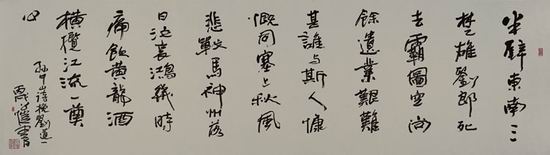 半壁東南三
楚雄劉郎死
去霸圖空尚
餘遺業艱難
甚誰与斯人慷
慨同塞上秋風
悲戰馬神州落
日泣哀鴻幾時
痛飲黄龍酒
橫攬江流一奠
公
孫中山詩挽劉道一
書